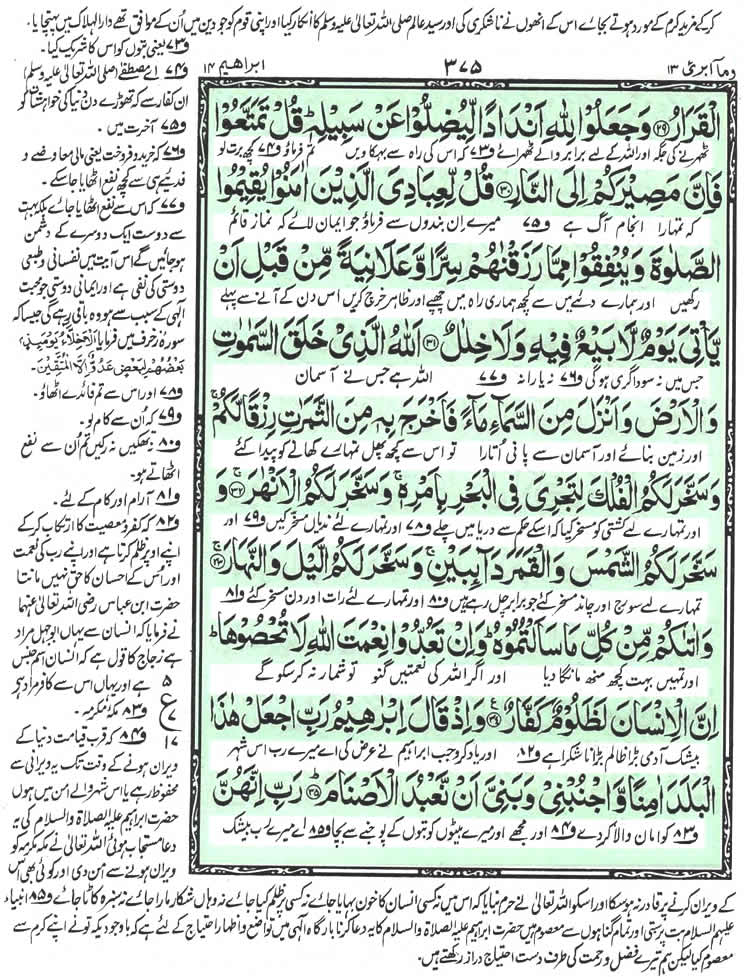 کرکے فرید کرم کے مورد ہوتے بجائے اس کے انھوں نے ناشکری کی اور سید عالم صلی اللہ تعالیٰ علیہ وسلم کا انکار کیا اور اپنی قوم کو جو دین میں اُن کے موافق تھے دار الہلاک میں پہنچایا۔
و۷۳ یعنی بتوں کو اس کا شریک کیا۔
و۷۴ اے مصطفےٰ (صلی اللہ تعالیٰ علیہ وسلم)
ان کفار سے کہ تھوڑے دن دنیا کی خواہشات کو
و۷۵ آخرت میں۔
و۷۶ کہ خرید و فروخت یعنی مالی معاوضے و
فدیے ہی سے کچھ نفع اٹھایا جا سکے۔
و۷۷ کہ اس سے نفع اٹھایا جائے بلکہ بہت
سے دوست ایک دوسرے کے دشمن
ہو جائیں گے اس آیت میں نفسانی و طبعی
دوستی کی نفی ہے اور ایمانی دوستی جو محبت
الٰہی کے سبب سے ہو وہ باقی رہے گی جیسا کہ
سورۂ زخرف میں فرمایا اَلْاَخِلَّاۤءُ یَوْمَىِٕذٍۭ
بَعْضُهُمْ لِبَعْضٍ عَدُوٌّ اِلَّا الْمُتَّقِیْنَ۔
و۷۸ اور اس سے تم فائدے اٹھاؤ۔
و۷۹ کہ اُن سے کام لو۔
و۸۰ نہ تھکیں نہ رکیں تم اُن سے نفع
اٹھاتے ہو۔
و۸۱ آرام اور کام کے لئے۔
و۸۲ کہ کفر و معصیت کا ارتکاب کرکے
اپنے اوپر ظلم کرتا ہے اور اپنے رب کی نعمت
اور اُس کے احسان کا حق نہیں مانتا
حضرت ابن عباس رضی اللہ تعالیٰ عنہما
نے فرمایا کہ انسان سے یہاں ابوجہل مراد
ہے زجاج کا قول ہے کہ انسان اسم جنس
ہے اور یہاں اس سے کافر مراد ہے ۵
و۸۳ مکہ مکرمہ۔ ع ۷
و۸۴ کہ قرب قیامت دنیا کے ۱۷
ویران ہونے کے وقت تک یہ ویرانی سے
محفوظ رہے یا اس شہر والے امن میں ہوں
حضرت ابراہیم علیہ الصلاۃ والسلام کی یہ
دعا مستجاب ہوئی اللہ تعالیٰ نے مکہ مکرمہ کو
ویران ہونے سے امن دی اور کوئی بھی اس
وما ابرئ ۱۳ ۳۷۵ ابراھیم ۱۴
الْقَرَارُ ﴿۲۹﴾ وَجَعَلُوْا لِلّٰهِ اَنْدَادًا لِّیُضِلُّوْا عَنْ سَبِیْلِهٖ ؕ قُلْ تَمَتَّعُوْا
ٹھہرنے کی جگہ اور اللہ کے لئے برابر والے ٹھہرائے و۷۳ کہ اس کی راہ سے بہکا ویں تم فرماؤ و۷۴ کچھ برت لو
فَاِنَّ مَصِیْرَكُمْ اِلَى النَّارِ ﴿۳۰﴾ قُلْ لِّعِبَادِیَ الَّذِیْنَ اٰمَنُوْا یُقِیْمُوا
کہ تمہارا انجام آگ ہے و۷۵ میرے ان بندوں سے فرماؤ جو ایمان لائے کہ نماز قائم
الصَّلٰوةَ وَیُنْفِقُوْا مِمَّا رَزَقْنٰهُمْ سِرًّا وَّعَلَانِیَةً مِّنْ قَبْلِ اَنْ
رکھیں اور ہمارے دیئے میں سے کچھ ہماری راہ میں چھپے اور ظاہر خرچ کریں اس دن کے آنے سے پہلے
یَّاْتِیَ یَوْمٌ لَّا بَیْعٌ فِیْهِ وَلَا خِلٰلٌ ﴿۳۱﴾ اَللّٰهُ الَّذِیْ خَلَقَ السَّمٰوٰتِ
جس میں نہ سوداگری ہوگی و۷۶ نہ یارانہ و۷۷ اللہ ہے جس نے آسمان
وَالْاَرْضَ وَاَنْزَلَ مِنَ السَّمَآءِ مَآءً فَاَخْرَجَ بِهٖ مِنَ الثَّمَرٰتِ رِزْقًا لَّكُمْ ۚ
اور زمین بنائے اور آسمان سے پانی اُتارا تو اس سے کچھ پھل تمہارے کھانے کو پیدا کئے
وَسَخَّرَ لَكُمُ الْفُلْكَ لِتَجْرِیَ فِی الْبَحْرِ بِاَمْرِهٖ ۚ وَسَخَّرَ لَكُمُ الْاَنْهٰرَ ﴿۳۲﴾ وَ
اور تمہارے لئے کشتی کو مسخر کیا کہ اس کے حکم سے دریا میں چلے و۷۸ اور تمہارے لئے ندیاں مسخر کیں و۷۹ اور
سَخَّرَ لَكُمُ الشَّمْسَ وَالْقَمَرَ دَآىِٕبَیْنِ ۚ وَسَخَّرَ لَكُمُ الَّیْلَ وَالنَّهَارَ ﴿۳۳﴾
تمہارے لئے سورج اور چاند مسخر کئے جو برابر چل رہے ہیں و۸۰ اور تمہارے لئے رات اور دن مسخر کئے و۸۱
وَاٰتٰىكُمْ مِّنْ كُلِّ مَا سَاَلْتُمُوْهُ ؕ وَاِنْ تَعُدُّوْا نِعْمَتَ اللّٰهِ لَا تُحْصُوْهَا ؕ
اور تمہیں بہت کچھ منھ مانگا دیا اور اگر اللہ کی نعمتیں گنو تو شمار نہ کر سکو گے
اِنَّ الْاِنْسَانَ لَظَلُوْمٌ كَفَّارٌ ﴿۳۴﴾ وَاِذْ قَالَ اِبْرٰهِیْمُ رَبِّ اجْعَلْ هٰذَا
بیشک آدمی بڑا ظالم بڑا ناشکرا ہے و۸۲ اور یاد کرو جب ابراہیم نے عرض کی اے میرے رب اس شہر
الْبَلَدَ اٰمِنًا وَّاجْنُبْنِیْ وَبَنِیَّ اَنْ نَّعْبُدَ الْاَصْنَامَ ﴿۳۵﴾ رَبِّ اِنَّهُنَّ
و۸۳ کو امان والا کردے و۸۴ اور مجھے اور میرے بیٹوں کو بتوں کے پوجنے سے بچا و۸۵ اے میرے رب بیشک
کے ویران کرنے پر قادر نہ ہو سکا اور اسکو اللہ تعالیٰ نے حرم بنایا کہ اس میں نہ کسی انسان کا خون بہایا جائے نہ کسی پر ظلم کیا جائے نہ وہاں شکار مارا جائے نہ سبزہ کاٹا جائے و۸۵ انبیاء
علیہم السلام بت پرستی اور تمام گناہوں سے معصوم ہیں حضرت ابراہیم علیہ الصلاۃ والسلام کا یہ دعا کرنا بارگاہ الٰہی میں تواضع و اظہار احتیاج کے لئے ہے کہ باوجودیکہ تو نے اپنے کرم سے
معصوم کیا لیکن ہم تیرے فضل و رحمت کی طرف دست احتیاج دراز رکھتے ہیں۔